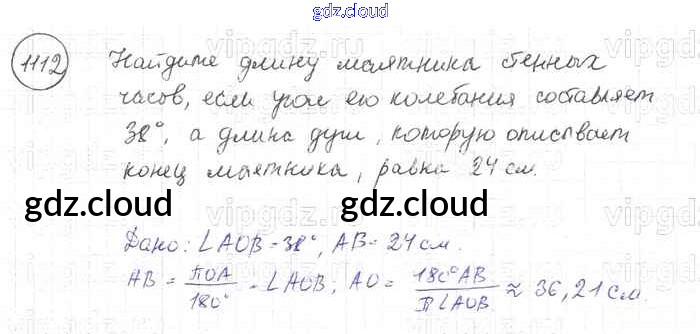 gdz.cloud
1112 Найдите длину маятника стенных
часов, если угол его колебания составляет
38°, а длина дуги, которую описывает
конец маятника, равна 24 см.
gdz.cloud gdz.cloud
Дано: ∠AOB = 38°, AB = 24 см.
AB = πOA/180° · ∠AOB; AO = 180°AB/π∠AOB ≈ 36,21 см.